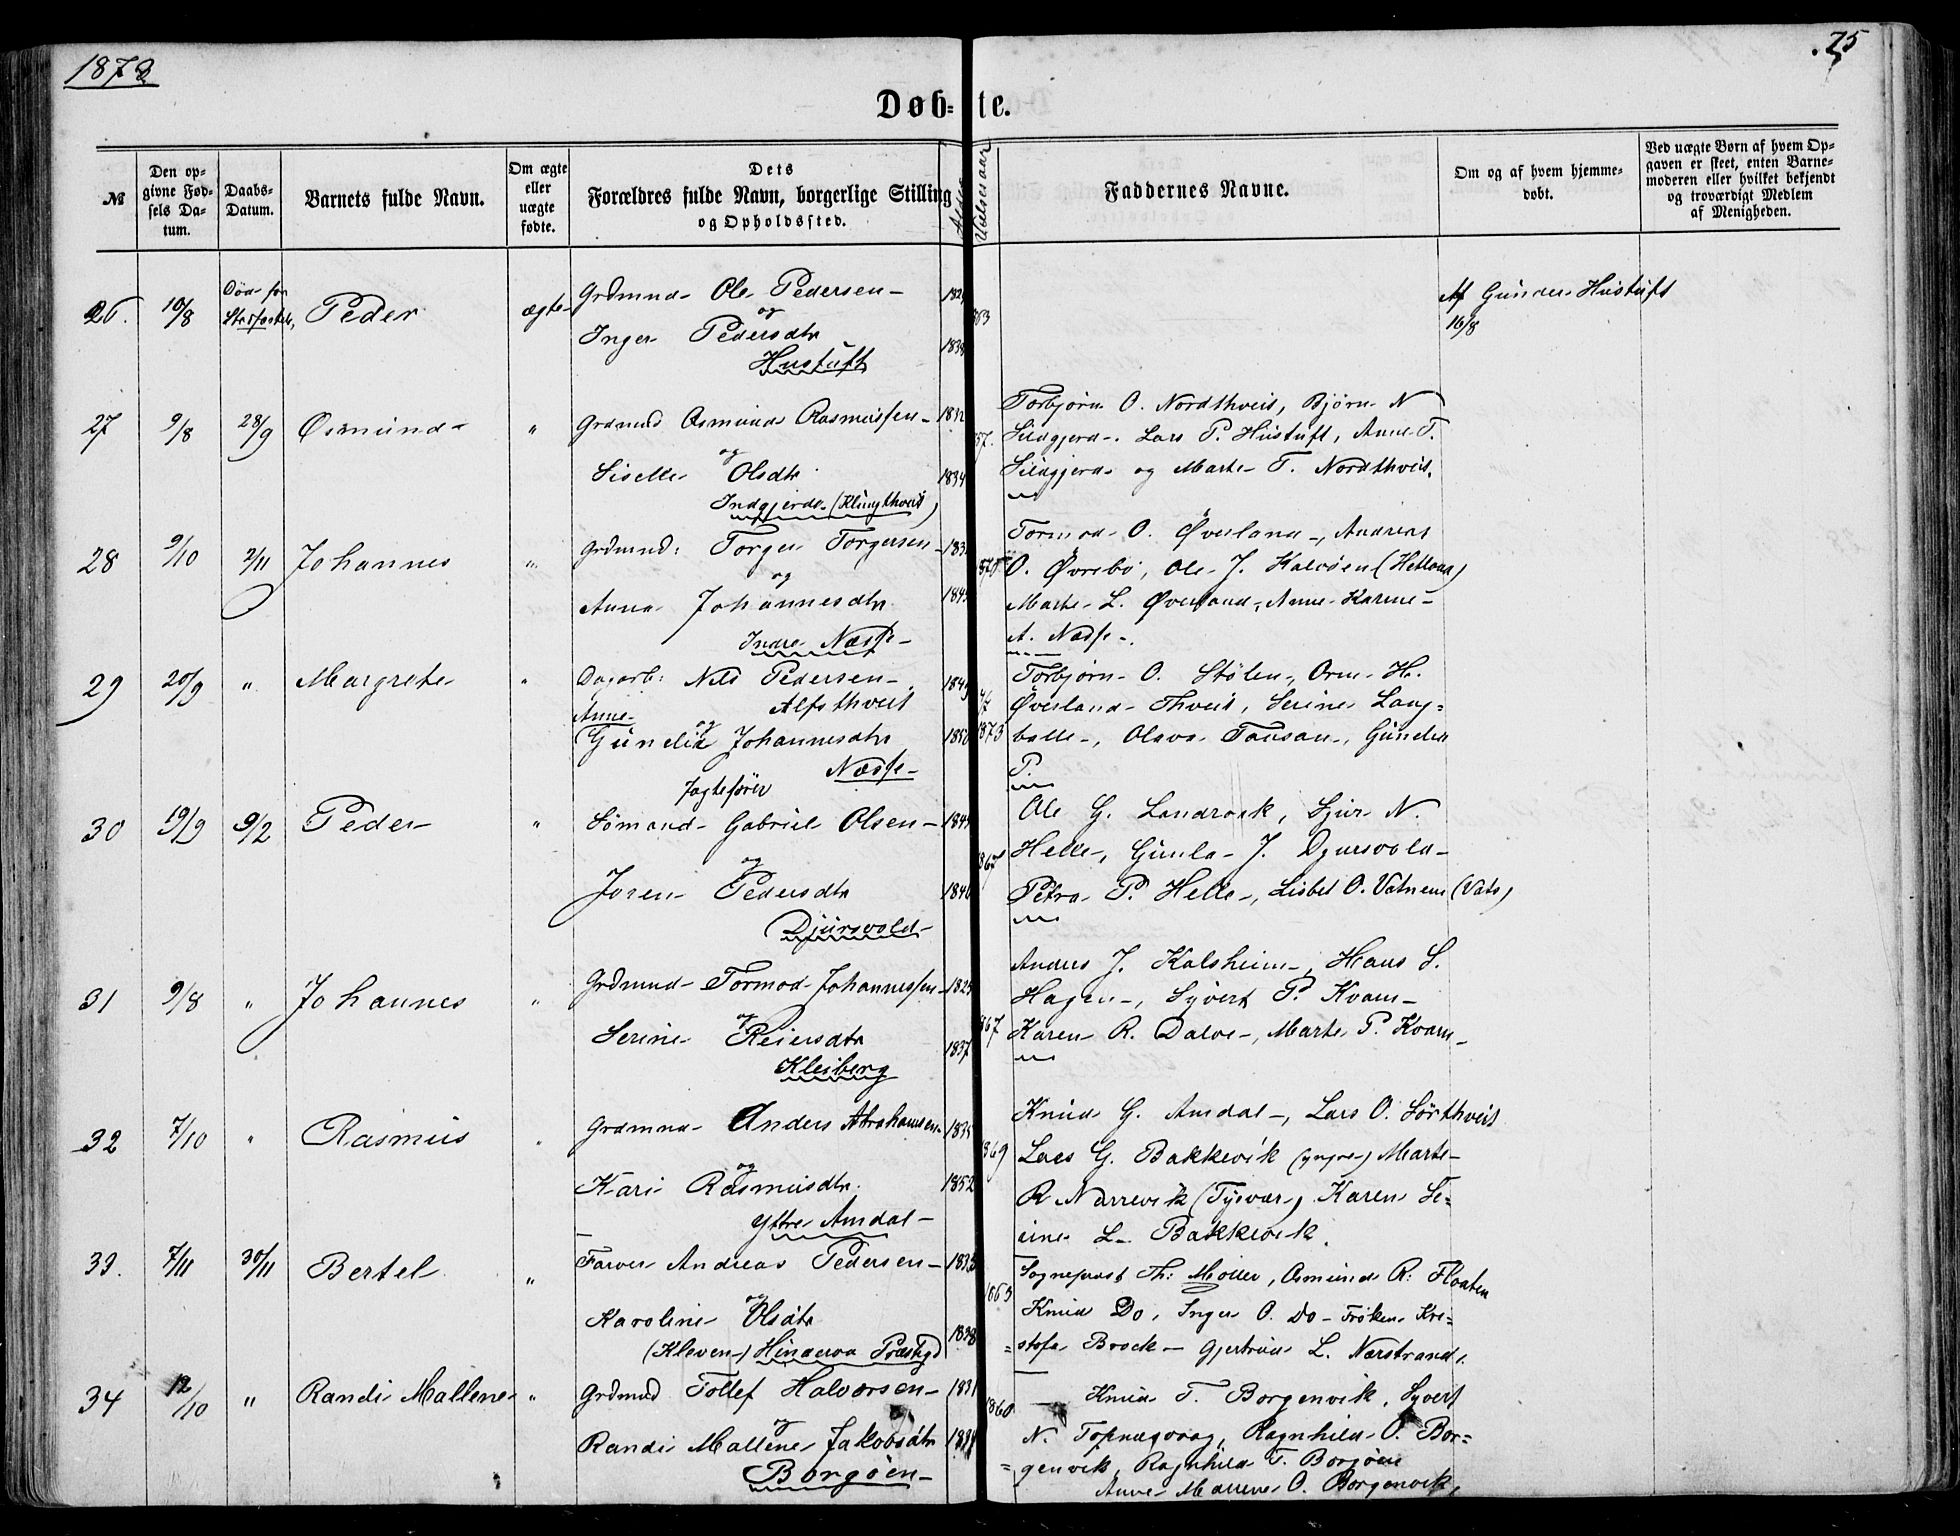 1873
.75
Døb-te.
№
Den op-
givne Fød-
sels Da-
tum.
Daabs-
Datum.
Barnets fulde Navn.
Om ægte
eller
uægte
fødte.
Dets
Forældres fulde Navn, borgerlige Stilling
og Opholdssted.
Vielsesaar
Faddernes Navne.
Om og af hvem hjemme-
døbt.
Ved uægte Børn af hvem Op-
gaven er skeet, enten Barne-
moderen eller hvilket bekjendt
og troværdigt Medlem
af Menigheden.
26. 10/8 Død før Stadfæstels, Peder ægte
Grdmnd Ole Pedersen
og
Inger Pedersdtr
Hustuft
Af Gunder Hustuft
16/8
27 9/8 28/9 Osmund "
Grdmnd Osmund Rasmussen 1832
og
Siselle Olsdtr 1834
Indgjerde (Klungthveit)
Torbjørn O. Nordthveit, Bjørn N
Sildgjerd. Lars P. Hustuft, Anne T.
Sildgjerd og Marte T. Nordthveit.
28 9/10 2/11 Johannes "
Grdmnd: Torger Torgersen
og
Anna Johannesdtr
Indre Næsse
Tormod O. Øverland, Andreas
O. Øvrebø, Ole J. Kalvøen (Hetland)
Marte L. Øverland, Anne Karine
A. Nædse.
29 20/9 " Margrete "
Dagarb: Nils Pedersen
Alfsthveit
Anne og
Gundla Johannesdtr
Nædse
1873
Torbjørn O. Stølen, Orm H.
Øverland Thveit, Serine Lang-
balle, Olava Tausan, Gunder
P.
30 19/9 9/2 Peder "
Jagtefører
Sømand Gabriel Olsen
og
Joren Pedersdtr
Djursvold
1867
Ole G. Landraak, Sjur N.
Helle, Gunla J. Djursvold
Petra P. Helle, Lisbet O. Vatnem (Vats)
31 9/8 " Johannes "
Grdmnd Tormod Johannessen
og
Serine Reiersdtr 1837
Kleiberg
1867
Anders J. Kalsheim, Hans S.
Hagen, Syvert P. Kvam
Karen R. Dalve, Marte P. Kvam
32 7/10 " Rasmus "
Grdmnd Anders Abrahamsen 1835
og
Kari Rasmusdtr 1852
Yttre Amdal
1869
Knud G. Amdal, Lars O. Sørthveit
Lars G. Bakkevik (yngre) Marte
R Narrevik (Tysvær) Karen Se-
rine L. Bakkevik.
33. 7/11 30/11 Bertel "
Farver Andreas Pedersen 1835
og
Karoline Olsdtr 1838
(Kleven) Hinderaa Præstgd
1863
Sogneprest Th: Møller, Osmund R: Floaten
Knud Do, Inger O. Do - Frøken Kri-
=stofa Brock - Gjertrud L. Nærstrand.
34 12/10 " Randi Mallene "
Grdmnd Tollef Halvorsen 1831
og
Randi Mallene Jakobsdtr
Borgøen
1860
Knud T. Borgenvik, Syvert
N. Topnæsvaag, Ragnhild O. Bor-
=genvik, Ragnhild T. Borgøen
Anne Mallene O. Borgenvik.